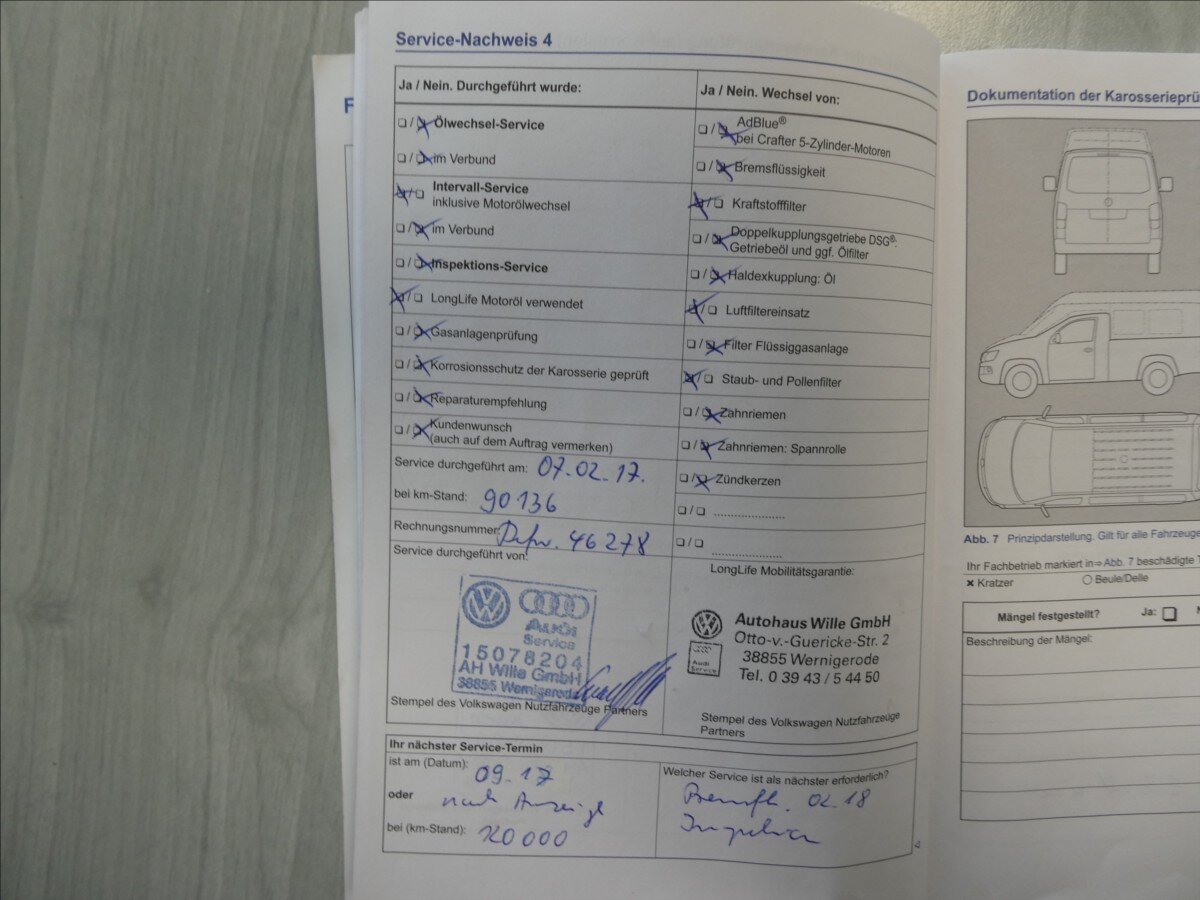 Service-Nachweis 4
Ja / Nein. Durchgeführt wurde:
❑ / ❑ Ölwechsel-Service
❑ / ❑ im Verbund
❑ / ❑ Intervall-Service
inklusive Motorölwechsel
❑ / ❑ im Verbund
❑ / ❑ Inspektions-Service
❑ / ❑ LongLife Motoröl verwendet
❑ / ❑ Gasanlagenprüfung
❑ / ❑ Korrosionsschutz der Karosserie geprüft
❑ / ❑ Reparaturempfehlung
❑ / ❑ Kundenwunsch
(auch auf dem Auftrag vermerken)
Service durchgeführt am: 07.02.17.
bei km-Stand: 90136
Rechnungsnummer: 46278
Service durchgeführt von:
Audi
Service
15078204
AH Wille GmbH
38855 Wernigerode
Stempel des Volkswagen Nutzfahrzeuge Partners
Ja / Nein. Wechsel von:
❑ / ❑ AdBlue®
bei Crafter 5-Zylinder-Motoren
❑ / ❑ Bremsflüssigkeit
❑ / ❑ Kraftstofffilter
❑ / ❑ Doppelkupplungsgetriebe DSG®:
Getriebeöl und ggf. Ölfilter
❑ / ❑ Haldexkupplung: Öl
❑ / ❑ Luftfiltereinsatz
❑ / ❑ Filter Flüssiggasanlage
❑ / ❑ Staub- und Pollenfilter
❑ / ❑ Zahnriemen
❑ / ❑ Zahnriemen: Spannrolle
❑ / ❑ Zündkerzen
❑ / ❑ .....................
❑ / ❑ .....................
LongLife Mobilitätsgarantie:
Autohaus Wille GmbH
Otto-v.-Guericke-Str. 2
38855 Wernigerode
Tel. 0 39 43 / 5 44 50
Audi
Service
Stempel des Volkswagen Nutzfahrzeuge
Partners
Ihr nächster Service-Termin
ist am (Datum): 09.17
oder nach Anzeige
bei (km-Stand): 120000
Welcher Service ist als nächster erforderlich?
Bremsfl. 02.18
Inspektion
4
F
Dokumentation der Karosserieprü
Abb. 7 Prinzipdarstellung. Gilt für alle Fahrzeuge
Ihr Fachbetrieb markiert in⇒Abb. 7 beschädigte T
✖ Kratzer ○ Beule/Delle
Mängel festgestellt? Ja: ❑ N
Beschreibung der Mängel: